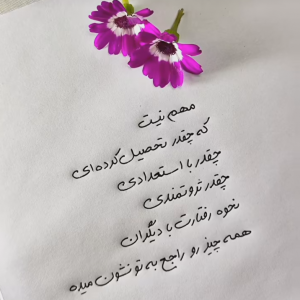 مهم نیست
که چقدر تحصیل کرده‌ای
چقدر با استعدادی
چقدر ثروتمندی
نحوه رفتارت با دیگران
همه چیز رو راجع به تو نشون میده